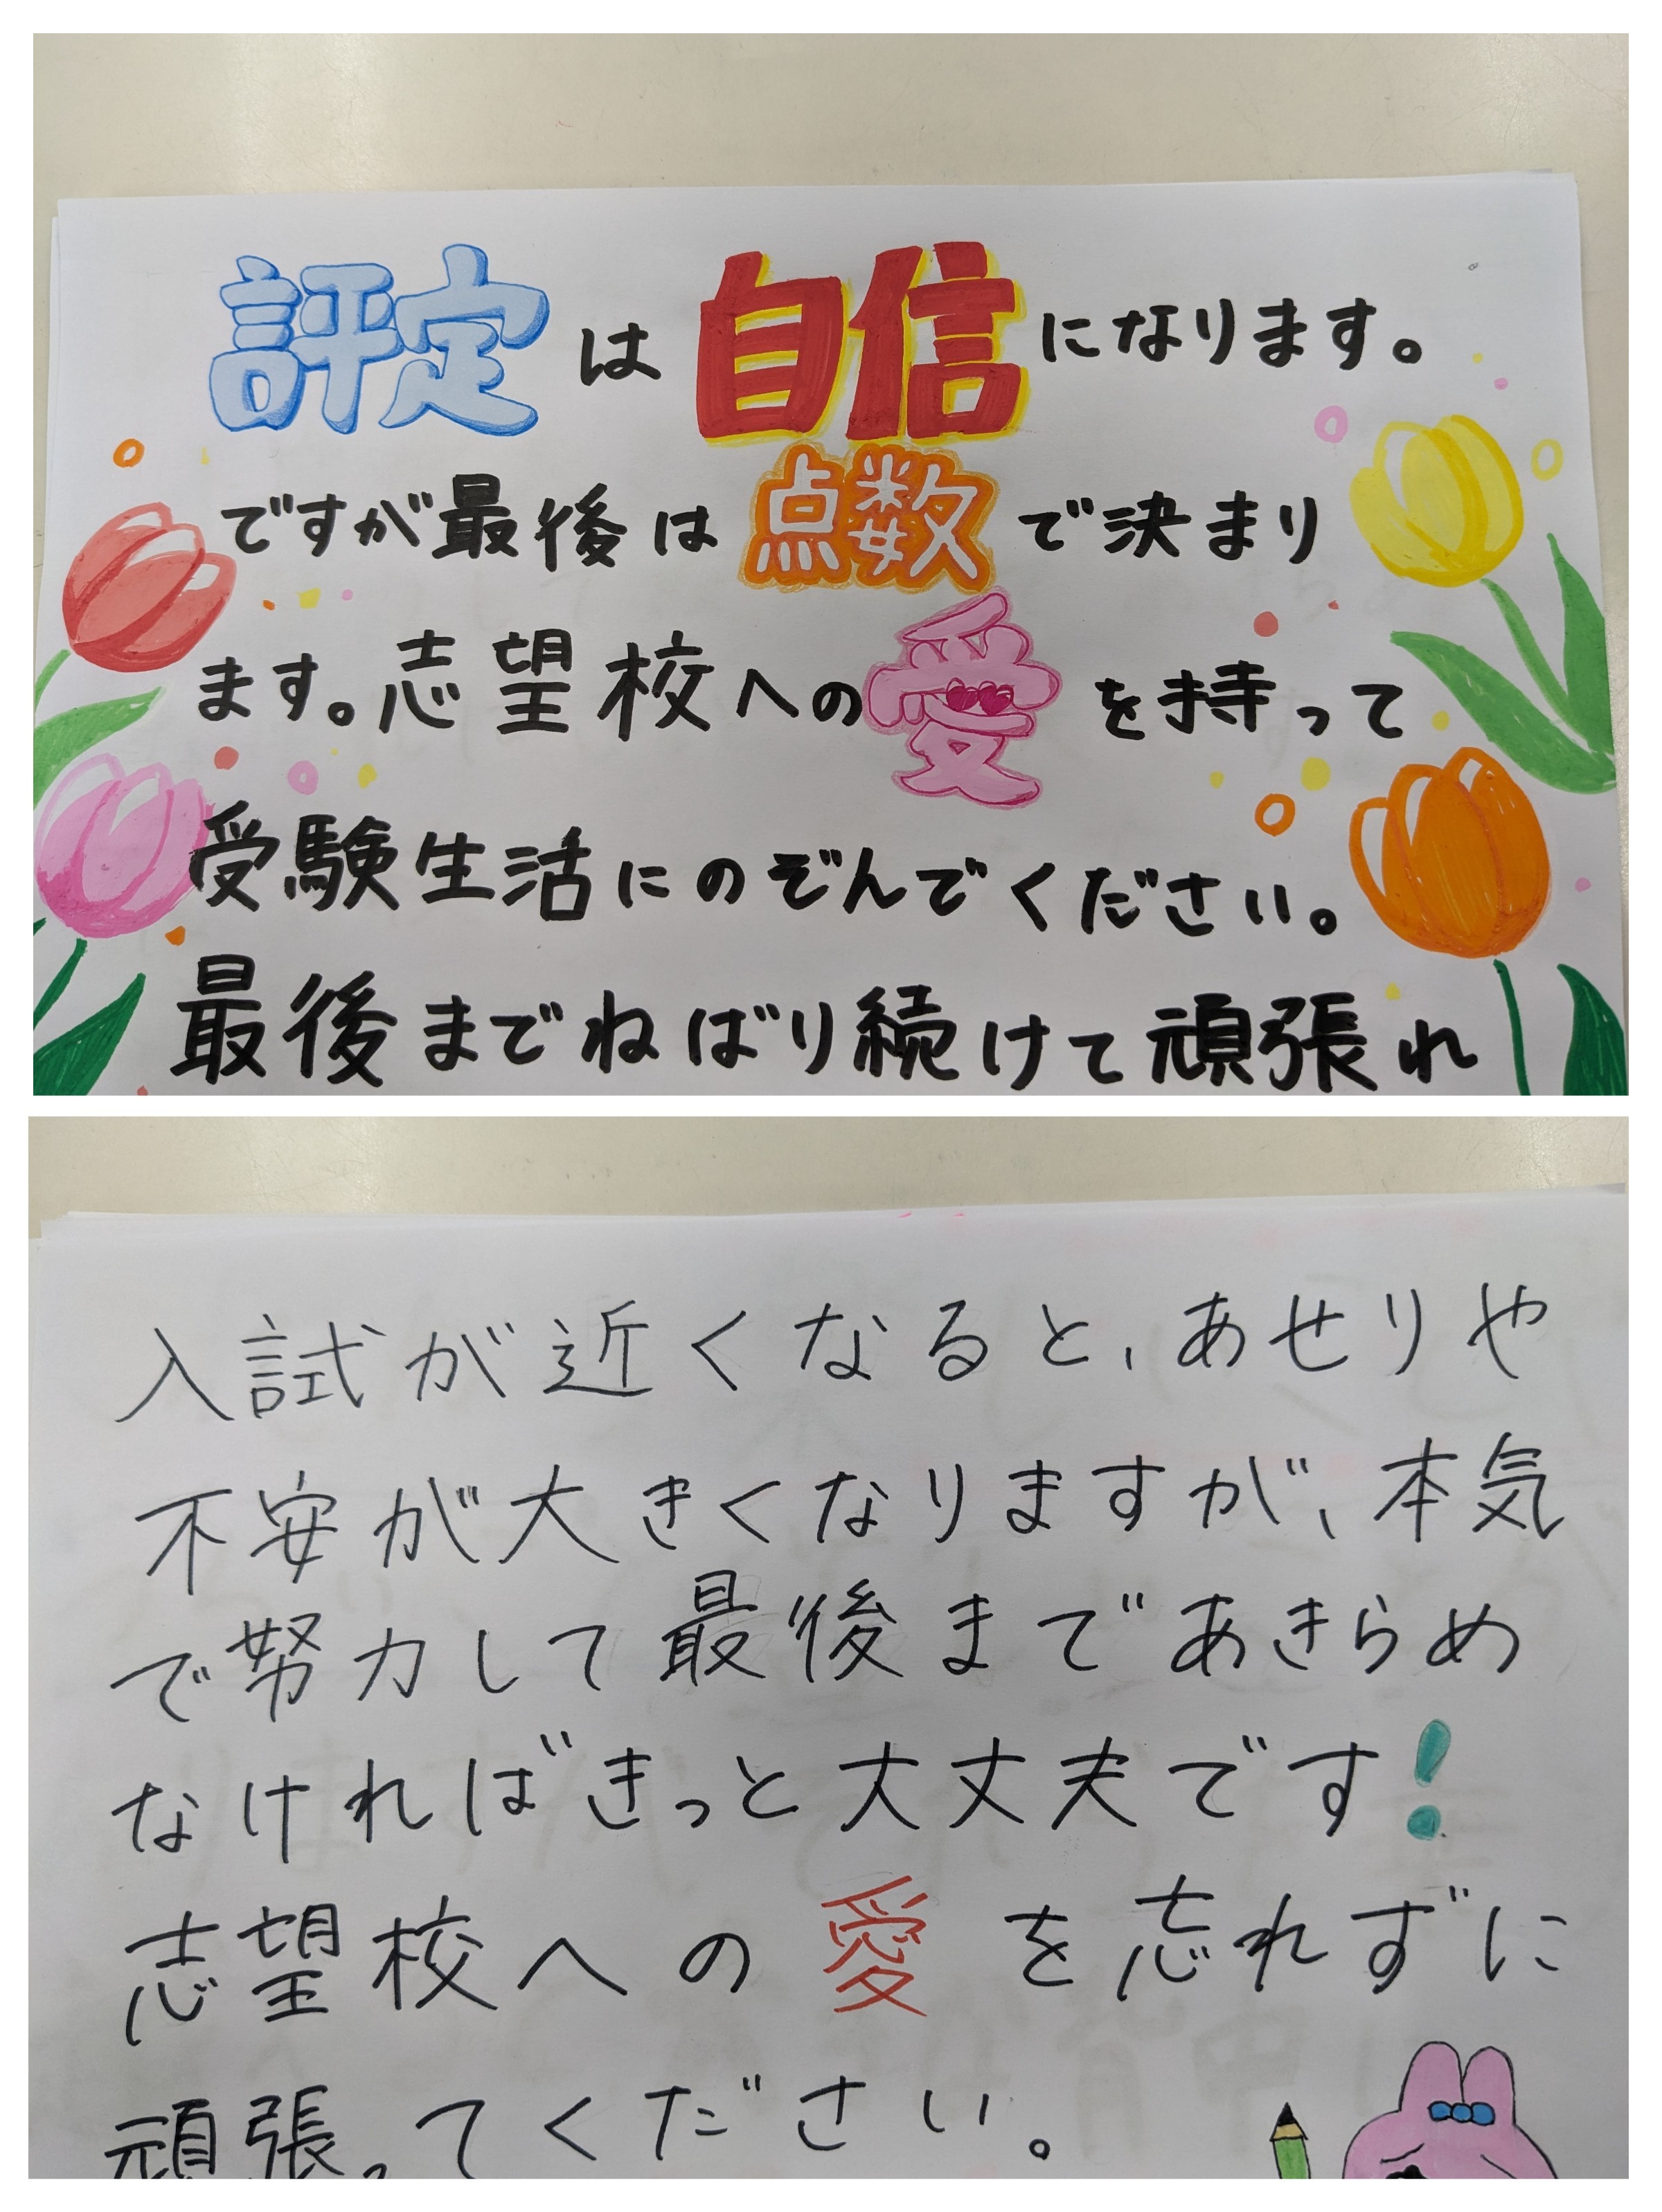 評定は自信になります。
ですが最後は点数で決まり
ます。志望校への愛を持って
受験生活にのぞんでください。
最後までねばり続けて頑張れ
入試が近くなると、あせりや
不安が大きくなりますが、本気
で努力して最後まであきらめ
なければきっと大丈夫です!
志望校への愛を忘れずに
頑張ってください。